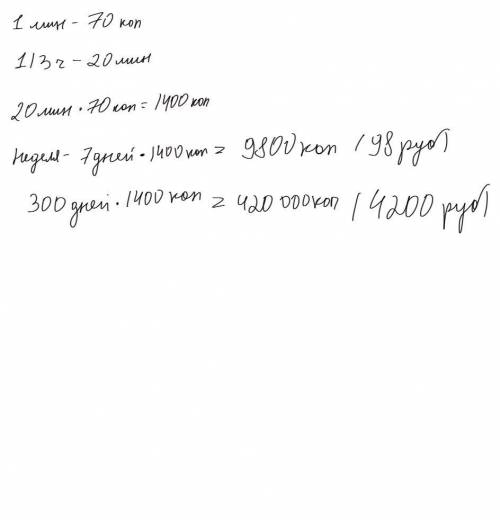 1 мин - 70 коп
1/3 ч - 20 мин
20 мин · 70 коп = 1400 коп
Неделя - 7 дней · 1400 коп = 9800 коп / 98 руб
300 дней · 1400 коп = 420 000 коп / 4200 руб